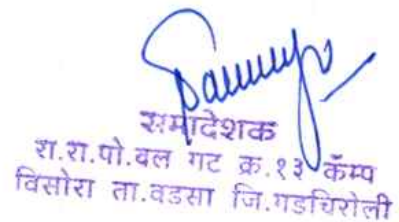 समादेशक
रा.रा.पो.बल गट क्र.१३ कॅम्प
विसोरा ता.वडसा जि.गडचिरोली